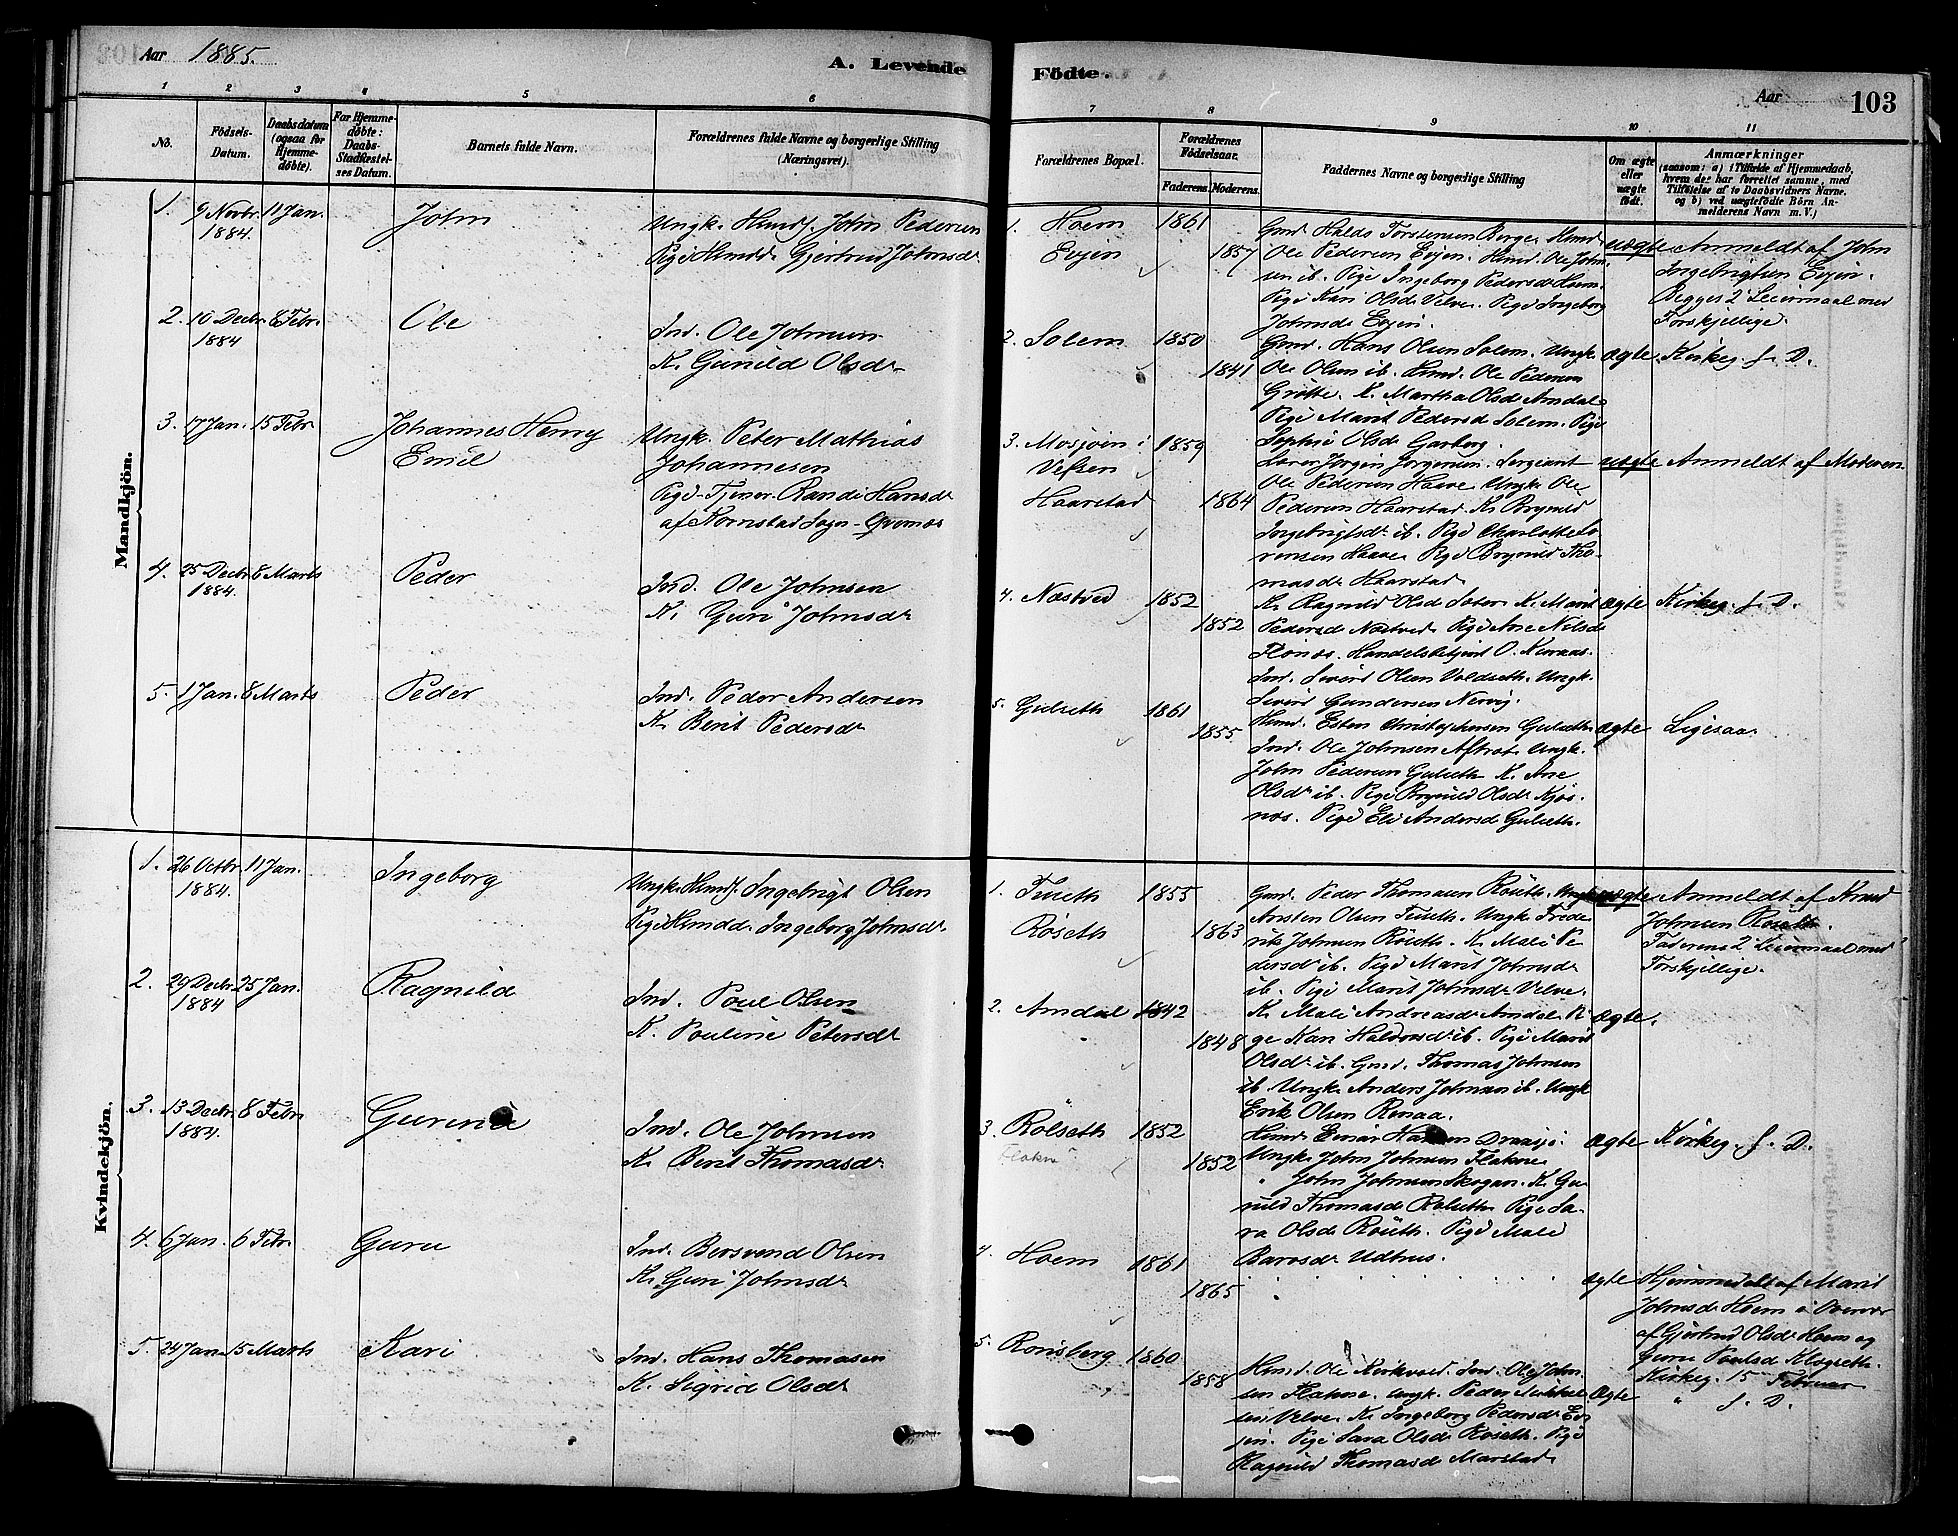 Aar 1885.
A. Levende Fødte.
Aar 103
1 2 3 4 5 6 7 8 9 10 11
No.
Fødsels-
Datum.
Daabsdatum
(ogsaa for
Hjemme-
døbte).
For Hjemme-
døbte:
Daabs-
Stadfæstel-
ses Datum.
Barnets fulde Navn.
Forældrenes fulde Navne og borgerlige Stilling
(Næringsvei).
Forældrenes Bopæl.
Forældrenes
Fødselsaar.
Faderens. Moderens.
Faddernes Navne og borgerlige Stilling
Om ægte
eller
uægte
født.
Anmærkninger
(saasom: a) i Tilfælde af Hjemmedaab,
hvem der har forrettet samme, med
Tilføielse af to Daabsvidners Navne,
og b) ved uægtefødte Børn An-
melderens Navn m. V.)
Mandkjön.
1. 9 Novbr. 11 Jan. John
1884.
Ungk. Hmdf. John Pedersen
Pige Hmdd. Gjertrud Johnsdr
1. Hoem 1861
Evjen 1857
Gmd. Halds Torstensen Berge. Hmd.
Ole Pedersen Evjen. Hmd. Ole John-
sen ib. Pige Ingeborg Pedersdr Hoem.
Pige Kari Olsdr Velve. Pige Ingeborg
Johnsdr Evjen.
uægte Anmeldt af John
Ingebrigtsen Evjen.
Begges 2' Leiermaal med
Forskjellige.
2. 10 Decbr. 8 Febr. Ole
1884
Ind. Ole Johnsen
K. Gunild Olsdr
2. Solem 1850
1841
Gmd. Hans Olsen Solem. Ungk.
Ole Olsen ib. Hmd. Ole Pedersen
Grøtte. K. Martha Olsd Amdal.
Pige Marit Pedersd Solem. Pige
Sophie Olsdr Garberg.
ægte Kirkeg. f. D.
3. 17 Jan. 15 Febr Johannes Henry
Emil
Ungk. Peter Mathias
Johannesen
Pige-Tjener Randi Hansdr
af Kornstad Sogn
3. Mosjøen i 1859
Vefsen
Haarstad 1864
Lærer Jørgen Jørgensen. Sergiant
Ole Pedersen Haave. Ungk. Ole
Pedersen Haarstad. K. Brynild
Ingebrigtsdr ib. Pige Charlotte Lo-
rensen Haave. Pige Brynild Tho-
masdr Haarstad.
uægte Anmeldt af Moderen
4. 25 Decbr. 8 Marts Peder
1884.
Ind. Ole Johnsen
K. Guri Johnsdr
4. Næstved 1852
1852
K. Ragnild Olsd Sæter. K. Marit
Pedersd Næstved. Pige Ane Nilsdr
Flønæs. Handelsbetjent O. Kuraas.
Ind. Sivert Olsen Voldseth. Ungk.
Sivert Gundersen Nervig.
ægte Kirkeg. f. D.
5. 1 Jan. 8 Marts Peder
Ind. Peder Andersen
K. Berit Pedersdr
5. Gulseth 1861
1855
Hmd. Esten Christophersen Gulseth.
Ind. Ole Johnsen Aftret. Ungk.
John Pedersen Gulseth. K. Ane
Olsdr ib. Pige Brynild Olsdr Kjøs-
næs. Pige Eli Andersd Gulseth.
ægte Ligesaa.
Kvindekjön.
1. 26 Octbr. 11 Jan. Ingeborg
1884.
Ungk. Hmdf. Ingebrigt Olsen
Pige Hmdd. Ingeborg Johnsdr
1. Tuseth 1855
Røseth 1863
Gmd. Peder Thomasen Røseth. Ungk.
Arsten Olsen Tuseth. Ungk. Frede-
rik Johnsen Røseth. K. Mali Pe-
dersdr ib. Pige Marit Johnsdr
ib. Pige Marit Johnsdr Velve.
uægte Anmeldt af
Johnsen Røseth.
Faderens 2' Leiermaal med
Forskjellige.
2. 29 Decbr. 25 Jan. Ragnild
1884
Ind. Poul Olsen
K. Pouline Petersdr
2. Amdal 1842
1848
K. Mali Andreasdr Amdal. Pi-
ge Kari Haldorsdr ib. Pige Marit
Olsdr ib. Gmd. Thomas Johnsen
ib. Ungk. Anders Johnsen ib. Ungk.
Erik Olsen Renaa.
ægte.
3. 13 Decbr. 8 Febr. Gurine
1884.
Ind. Ole Johnsen
K. Berit Thomasdr
3. Rolseth 1852
1852
Hmd. Einar Hansen Draasjø.
Ungk. John Johnsen Flakne
" John Johnsen Skogan. K. Gu-
nild Thomasdr Rolseth. Pige Sa-
ra Olsdr Røseth. Pige Mali
Bærsdr Udhus.
ægte Kirkeg. f. D.
4. 6 Jan. 6 Febr. Guru
Ind. Bersvend Olsen
K. Guri Johnsdr
4. Hoem 1861
1865
ægte Hjemmedøbt af Marit
Johnsdr Hoem i Overvær
af Gjertrud Olsdr Hoem og
Guru Poulsd
Kirkeg. 15 Februar
5. 24 Jan. 15 Marts Kari
Ind. Hans Thomasen
K. Sigrid Olsdr
5. Rønsberg 1860
1858
Hmd. Ole Kirkvold. Ind. Ole John-
sen Flakne. Ungk. Peder Mikkel-
sen Velve. K. Ingeborg Pedersdr Ev-
jen. Pige Sara Olsdr Røseth. Pige
Ragnild Thomasdr Marstad.
ægte " f. D.